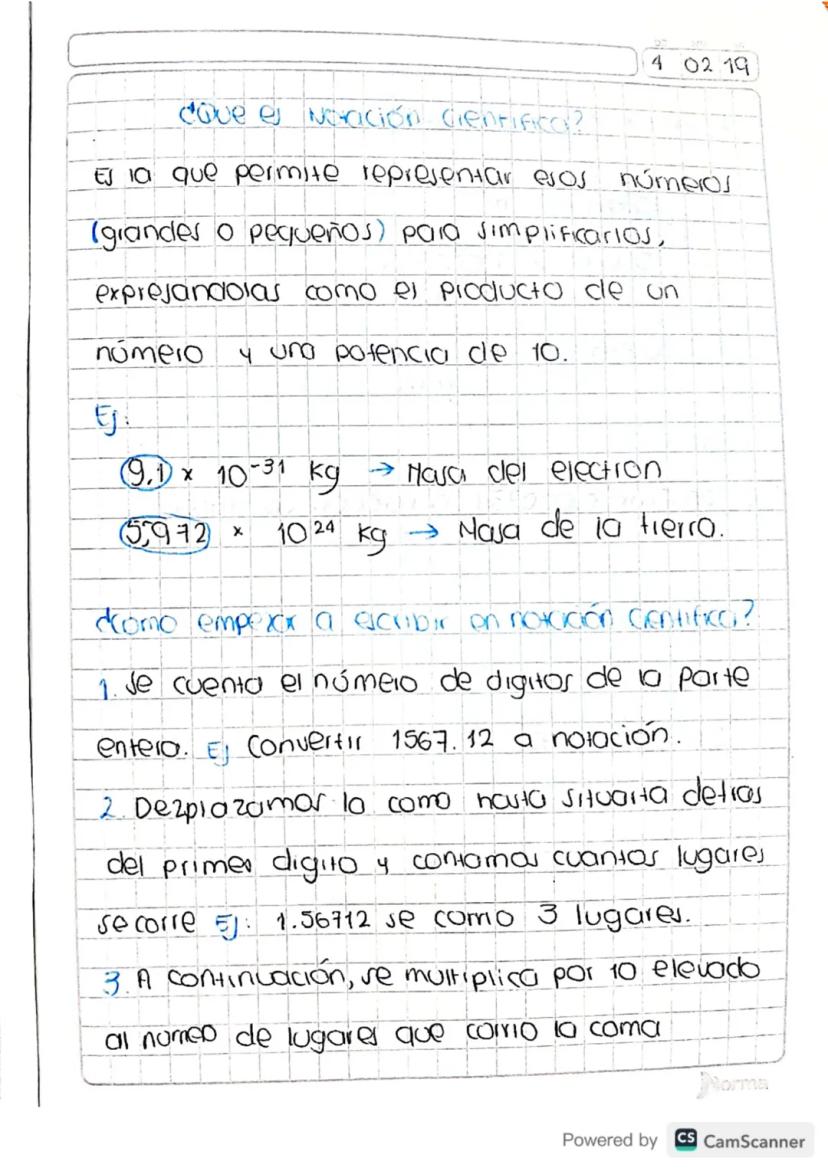 4 02 19
¿Que es Notación Cientifica?
Es la que permite representar esos números
(grandes o pequeños) para simplificarlos,
expresandolas como el producto de un
número y una potencia de 10.
Ej:
9,1 x 10-31 kg → Masa del electron
5,972 x 10 24 kg → Masa de la tierra.
¿Como empezar a escribir en notación cientifica?
1. Se cuenta el número de digitos de la parte
entera. Ej Convertir 1567.12 a notación.
2. Dezplazamos la coma hasta situarla detras
del primer digito y contamos cuantos lugares
se corre Ej: 1.56712 se como 3 lugares.
3. A continuación, se multiplica por 10 elevado
al numero de lugares que corrio la coma
Norma
Powered by CS CamScanner